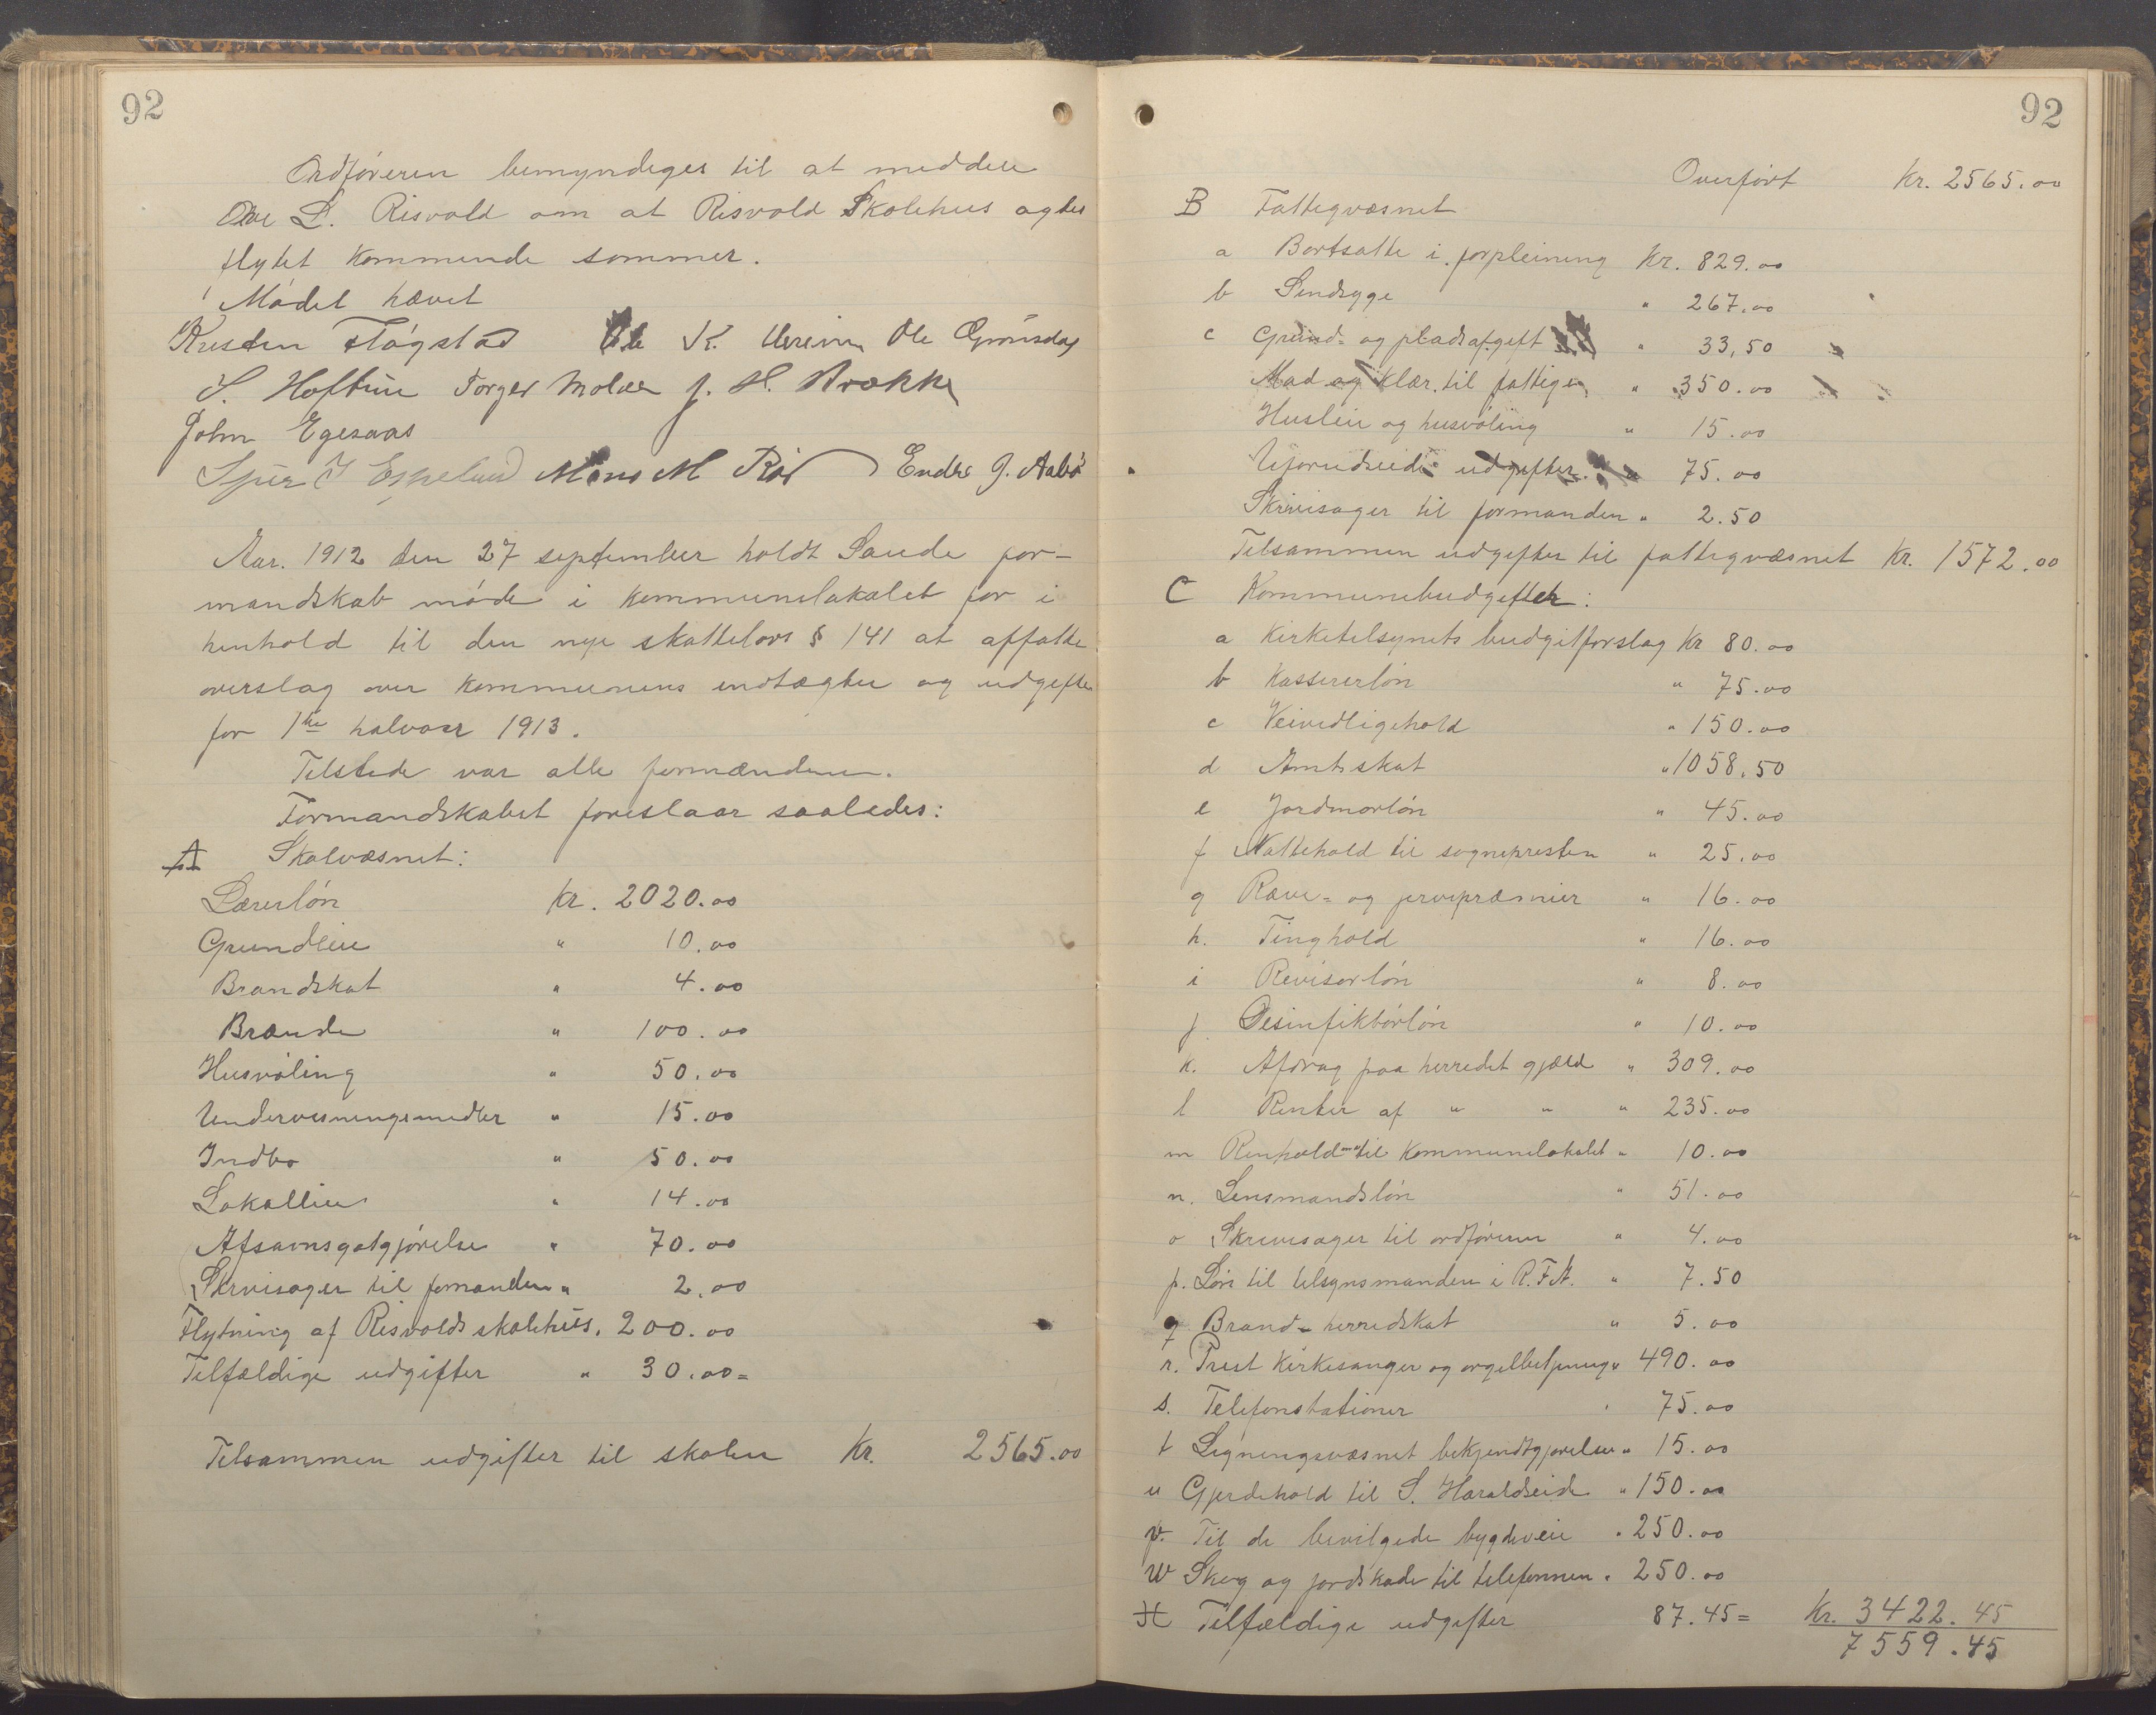 92
Ordføreren bemyndiges til at meddele
Ove L. Risvold om at Risvold Skolehus agtes
flytet kommende sommer.
Mødet hævet
Kristen Fløgstad Ole K. Ole Grønsdag
S. Hoftun Torger Molaen J. H. Brække
John Egesaas
Sjur J Espeland Mons M Rød Endre J. Aabø
Aar. 1912 den 27 september holdt Saude for-
mandskab møde i kommunelokalet for i
henhold til den nye skattelovs § 141 at affatte
overslag over kommunens indtægter og udgifter
for 1ste halvaar 1913.
Tilstede var alle formændene.
Formandskabet foreslaar saaledes:
A Skolvæsnet:
Lærerløn kr. 2020.00
Grundleie " 10.00
Brandskat " 4.00
Brænde " 100.00
Husvøling " 50.00
Undervisningsmidler " 15.00
Indbo " 50.00
Lokalleie " 14.00
Afsavnsgotgjørelse " 70.00
Skrivisager til formanden " 2.00
Flytning af Risvolds skolehus. 200.00
Tilfældige udgifter " 30.00=
Tilsammen udgifter til skolen Kr. 2565.00
92
Overført Kr. 2565.00
B Fattigvæsnet
a Bortsatte i forpleining Kr. 829.00
b Sindsyge " 267.00
c Grund- og pladsafgift " 33,50
Mad og klær til fattige " 350.00
Husleie og husvøling " 15.00
Uforudseede udgifter " 75.00
Skrivisager til formanden " 2.50
Tilsammen udgifter til fattigvæsnet Kr. 1572.00
C Kommuneudgifter:
a Kirketilsynets budgitforslag Kr 80.00
b Kassererløn " 75.00
c Veivedligehold " 150.00
d Amtsskat " 1058.50
e Jordmorløn " 45.00
f Nattehold til sognepresten " 25.00
g Ræve- og jervepræmier " 16.00
h. Tinghold " 16.00
i Revisorløn " 8.00
j Desinfiktørløn " 10.00
k. Afdrag paa herredet gjæld " 309.00
l Renter af " " " 235.00
m Renhold til kommunelokalet " 10.00
n. Lensmandsløn " 51.00
o Skrivisager til ordføreren " 4.00
p. Løn til tilsynsmanden i R.F.A. " 7.50
q Brand- herredskat " 5.00
r. Prest kirkesanger og orgelbetjening " 490.00
s. Telefonstationer " 75.00
t Ligningsvæsnet bekjendtgjørelser " 15.00
u Gjerdehold til S. Haraldseide " 150.00
v. Til de bevilgede bygdeveie " 250.00
w Skog og jordskade til telefonnen " 250.00
Tilfældige udgifter 87.45= Kr. 3422.45
7559.45